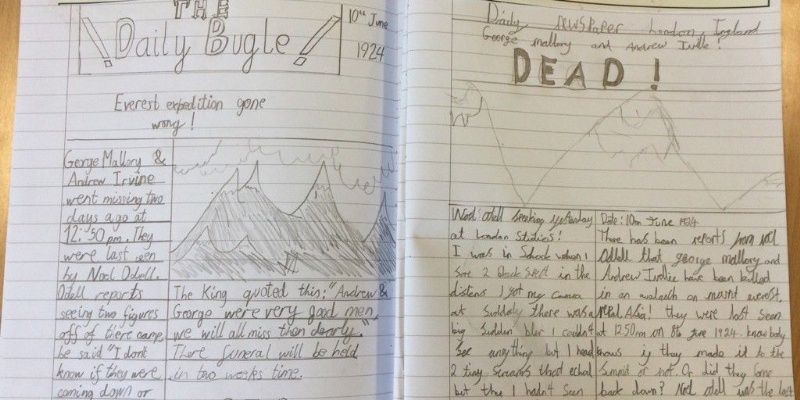 THE
Daily Bugle!
10th June
1924
Everest expedition gone
wrong!
George Mallory &
Andrew Irvine
went missing two
days ago at
12:50 pm. They
were last seen
by Noel Odell.
Odell reports
seeing two figures
off of there camp
he said "I dont
know if they were
coming down or
The King quoted this: "Andrew &
George were very good men,
we will all miss then dearly."
There funeral will be held
in two weeks time.
Daily newspaper London, England
George mallory and Andrew
DEAD!
Noel odell speaking yesterday
at London Studios!
I was in Schock when I
2 black in the
distens I got my camera
Suddely there was a
big Sudden blur I couldn't
See anything but I head
2 tiny screams that echod
but then I hadn't seen
Date: 10th June 1924
There has been reports from noel
Odell that george mallory and
Andrew have been killed
in an on mount everest,
Nepal, Asia! they were last seen
at 12:50 pm on 8th june 1924. know body
knows if they made it to the
or not. Or did they come
back down? Noel odell was the last